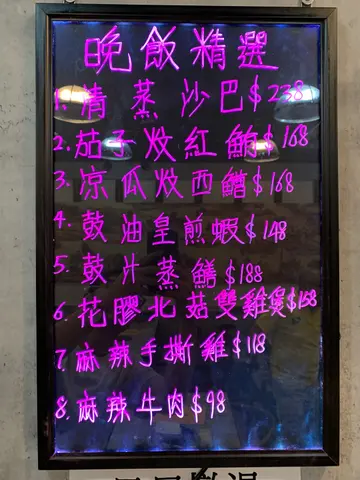 晚飯精選
1. 清蒸沙巴$238
2. 茄子炆紅鮪$168
3. 凉瓜炆西鱛$168
4. 鼓油皇煎蝦$148
5. 鼓汁蒸鱔$188
6. 花膠北菇雙雞煲$158
7. 麻辣手撕雞$118
8. 麻辣牛肉$98